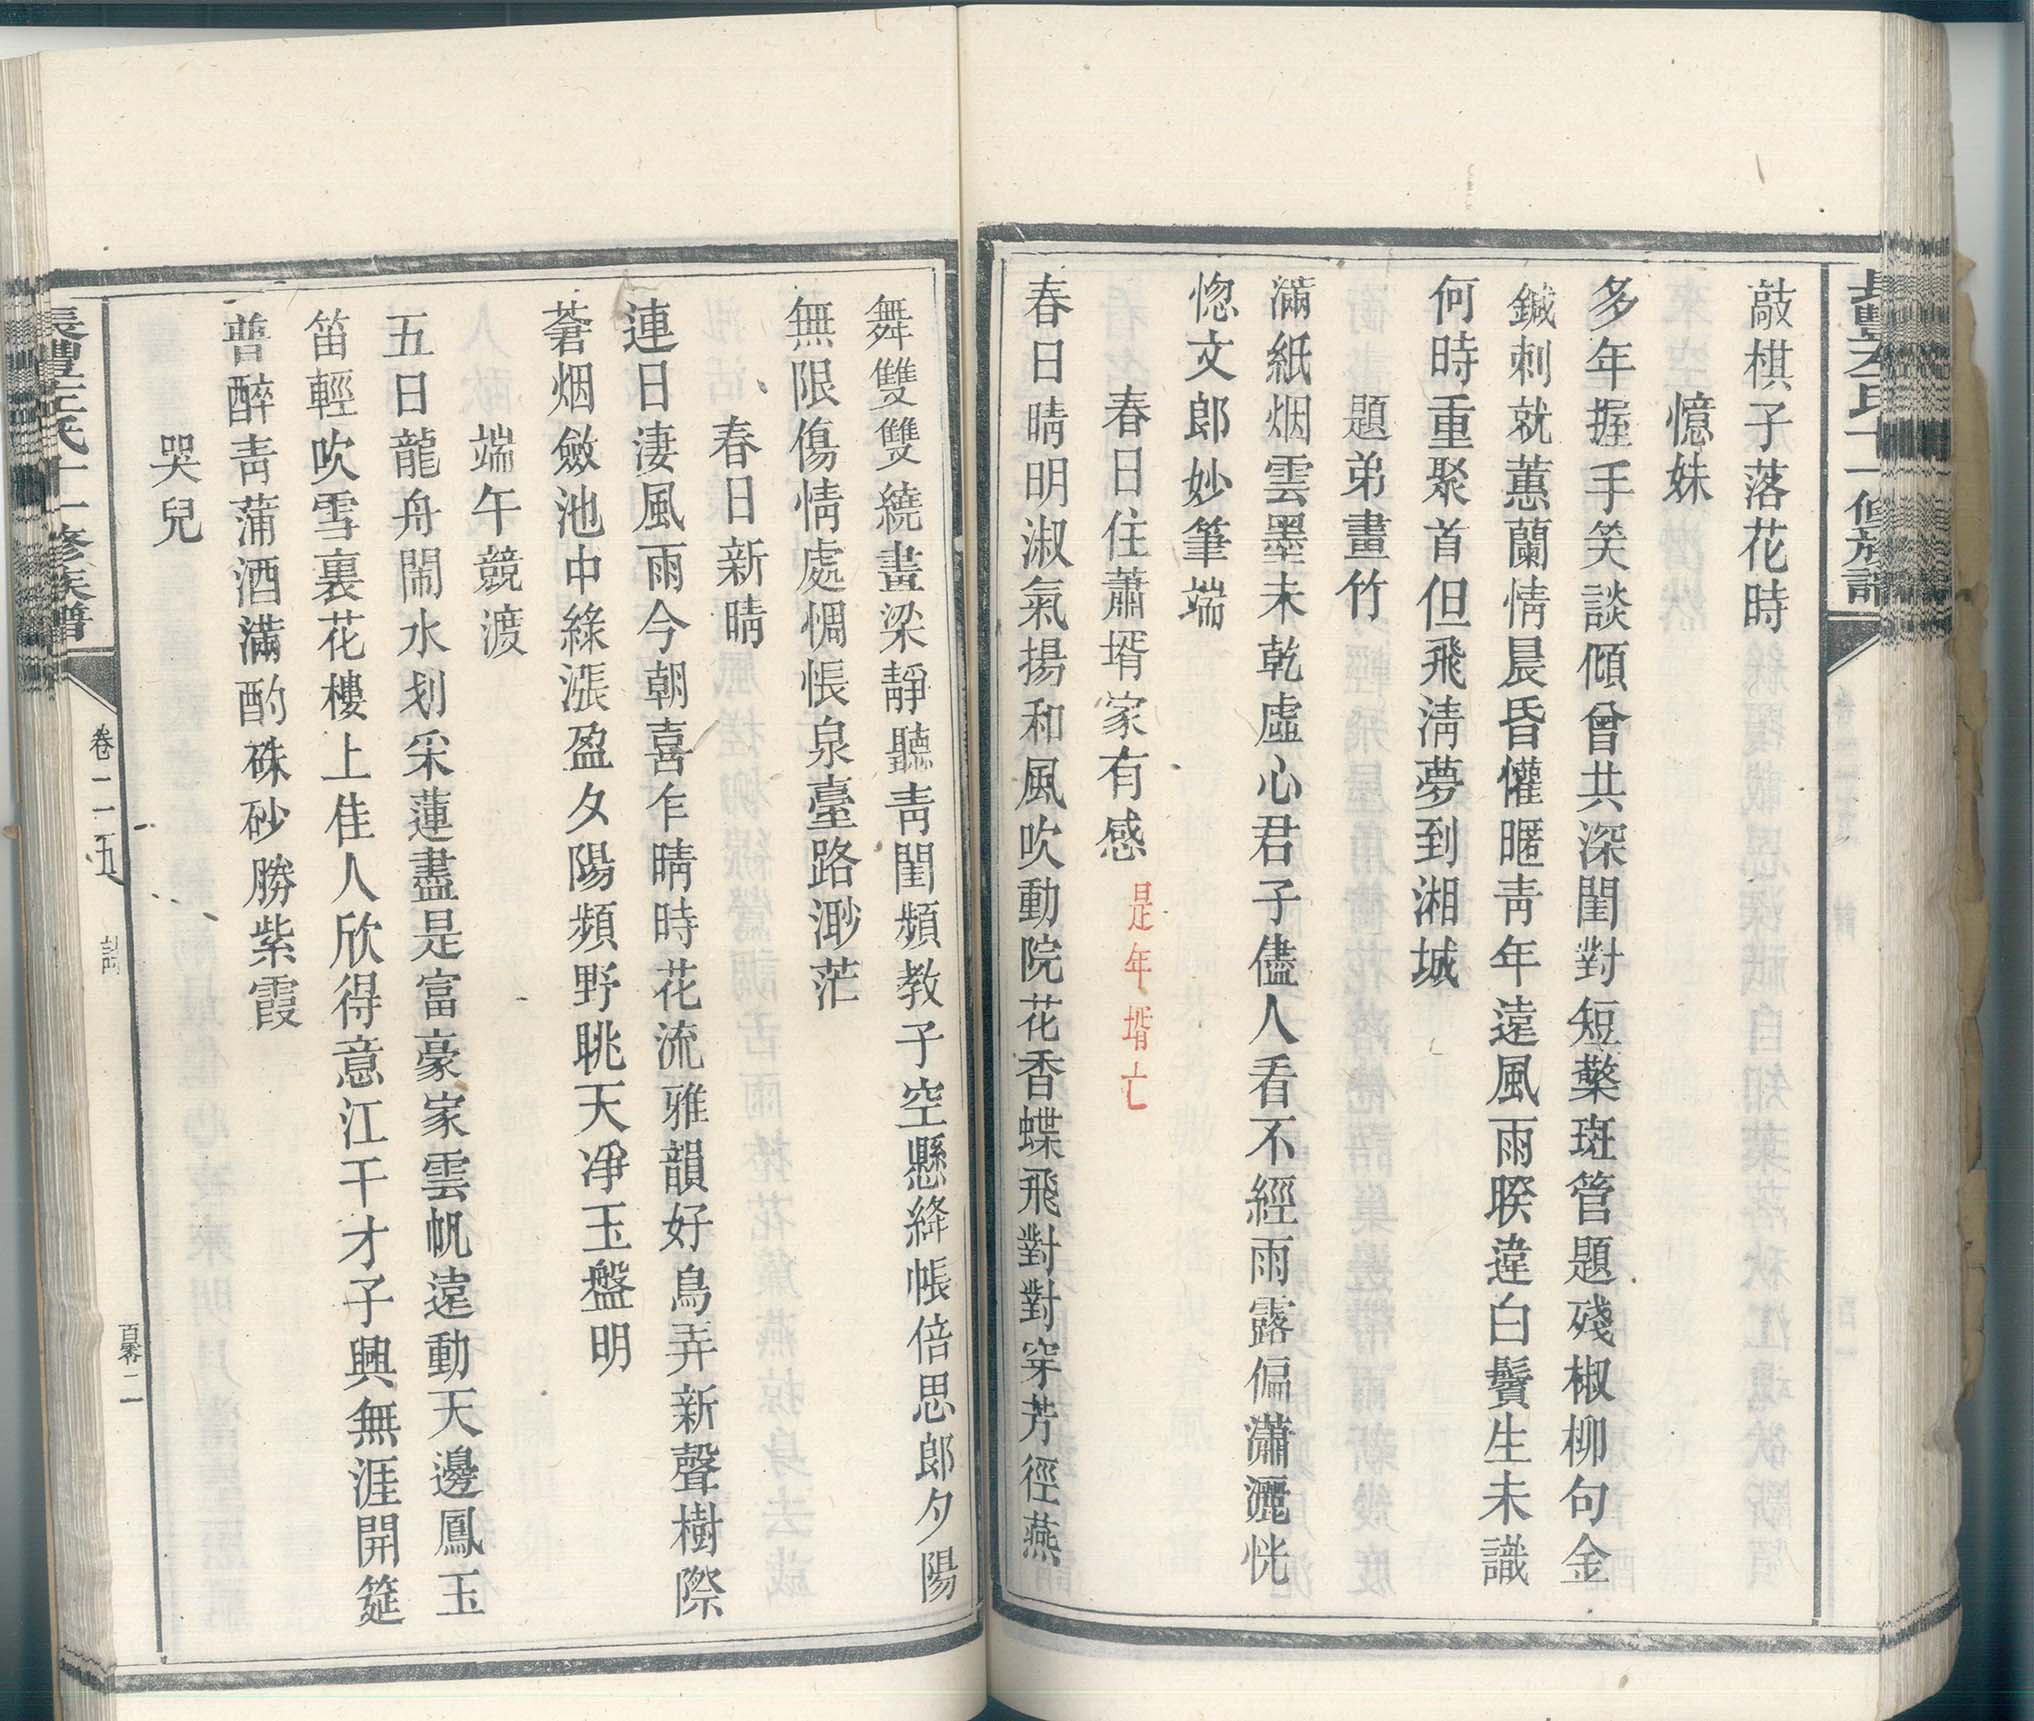 敲棋子落花時
憶妹
多年握手笑談傾曾共深閨對短檠斑管題殘椒柳句金
鍼刺就蕙蘭情晨昏懽暱靑年遠風雨暌違白鬢生未識
何時重聚首但飛淸夢到湘城
題弟畫竹
滿紙烟雲墨未乾虛心君子儘人看不經雨露偏瀟灑恍
惚文郎妙筆端
春日住蕭壻家有感 是年壻亡
春日晴明淑氣揚和風吹動院花香蝶飛對對穿芳徑燕
舞雙雙繞畫梁靜聽靑閨頻教子空懸絳帳倍思郞夕陽
無限傷情處惆悵泉臺路渺茫
春日新晴
連日淒風雨今朝喜乍晴時花流雅韻好鳥弄新聲樹際
蒼烟斂池中綠漲盈夕陽頻野眺天淨玉盤明
端午競渡
五日龍舟鬧水划采蓮盡是富豪家雲帆遠動天邊鳳玉
笛輕吹雪裏花樓上佳人欣得意江干才子興無涯開筵
普醉靑蒲酒滿酌硃砂勝紫霞
哭兒
長豐左氏十一修族譜
卷二五
百零二